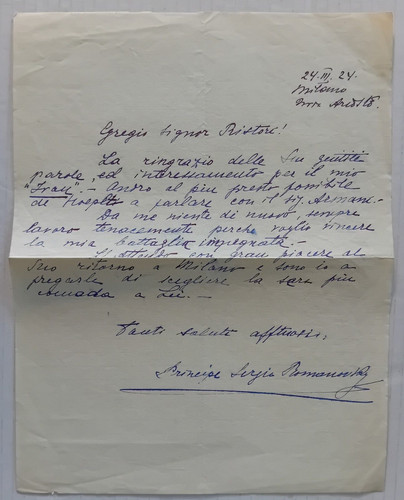 24.III.24.
Milano
Egregio Signor Ristori!
La ringrazio delle Sue gentili
parole, ed interessamento per il mio
"Frack".- Andrò al più presto possibile
da a parlare con il sig. Armani.-
Da me niente di nuovo, sempre
lavoro tenacemente perchè voglio vincere
la mia battaglia impegnata.-
con gran piacere al
Suo ritorno a Milano e sono io a
pregarla di scegliere la sera più
comoda a Lei.-
Tanti saluti affettuosi,
Principe Sergio Romanovsky